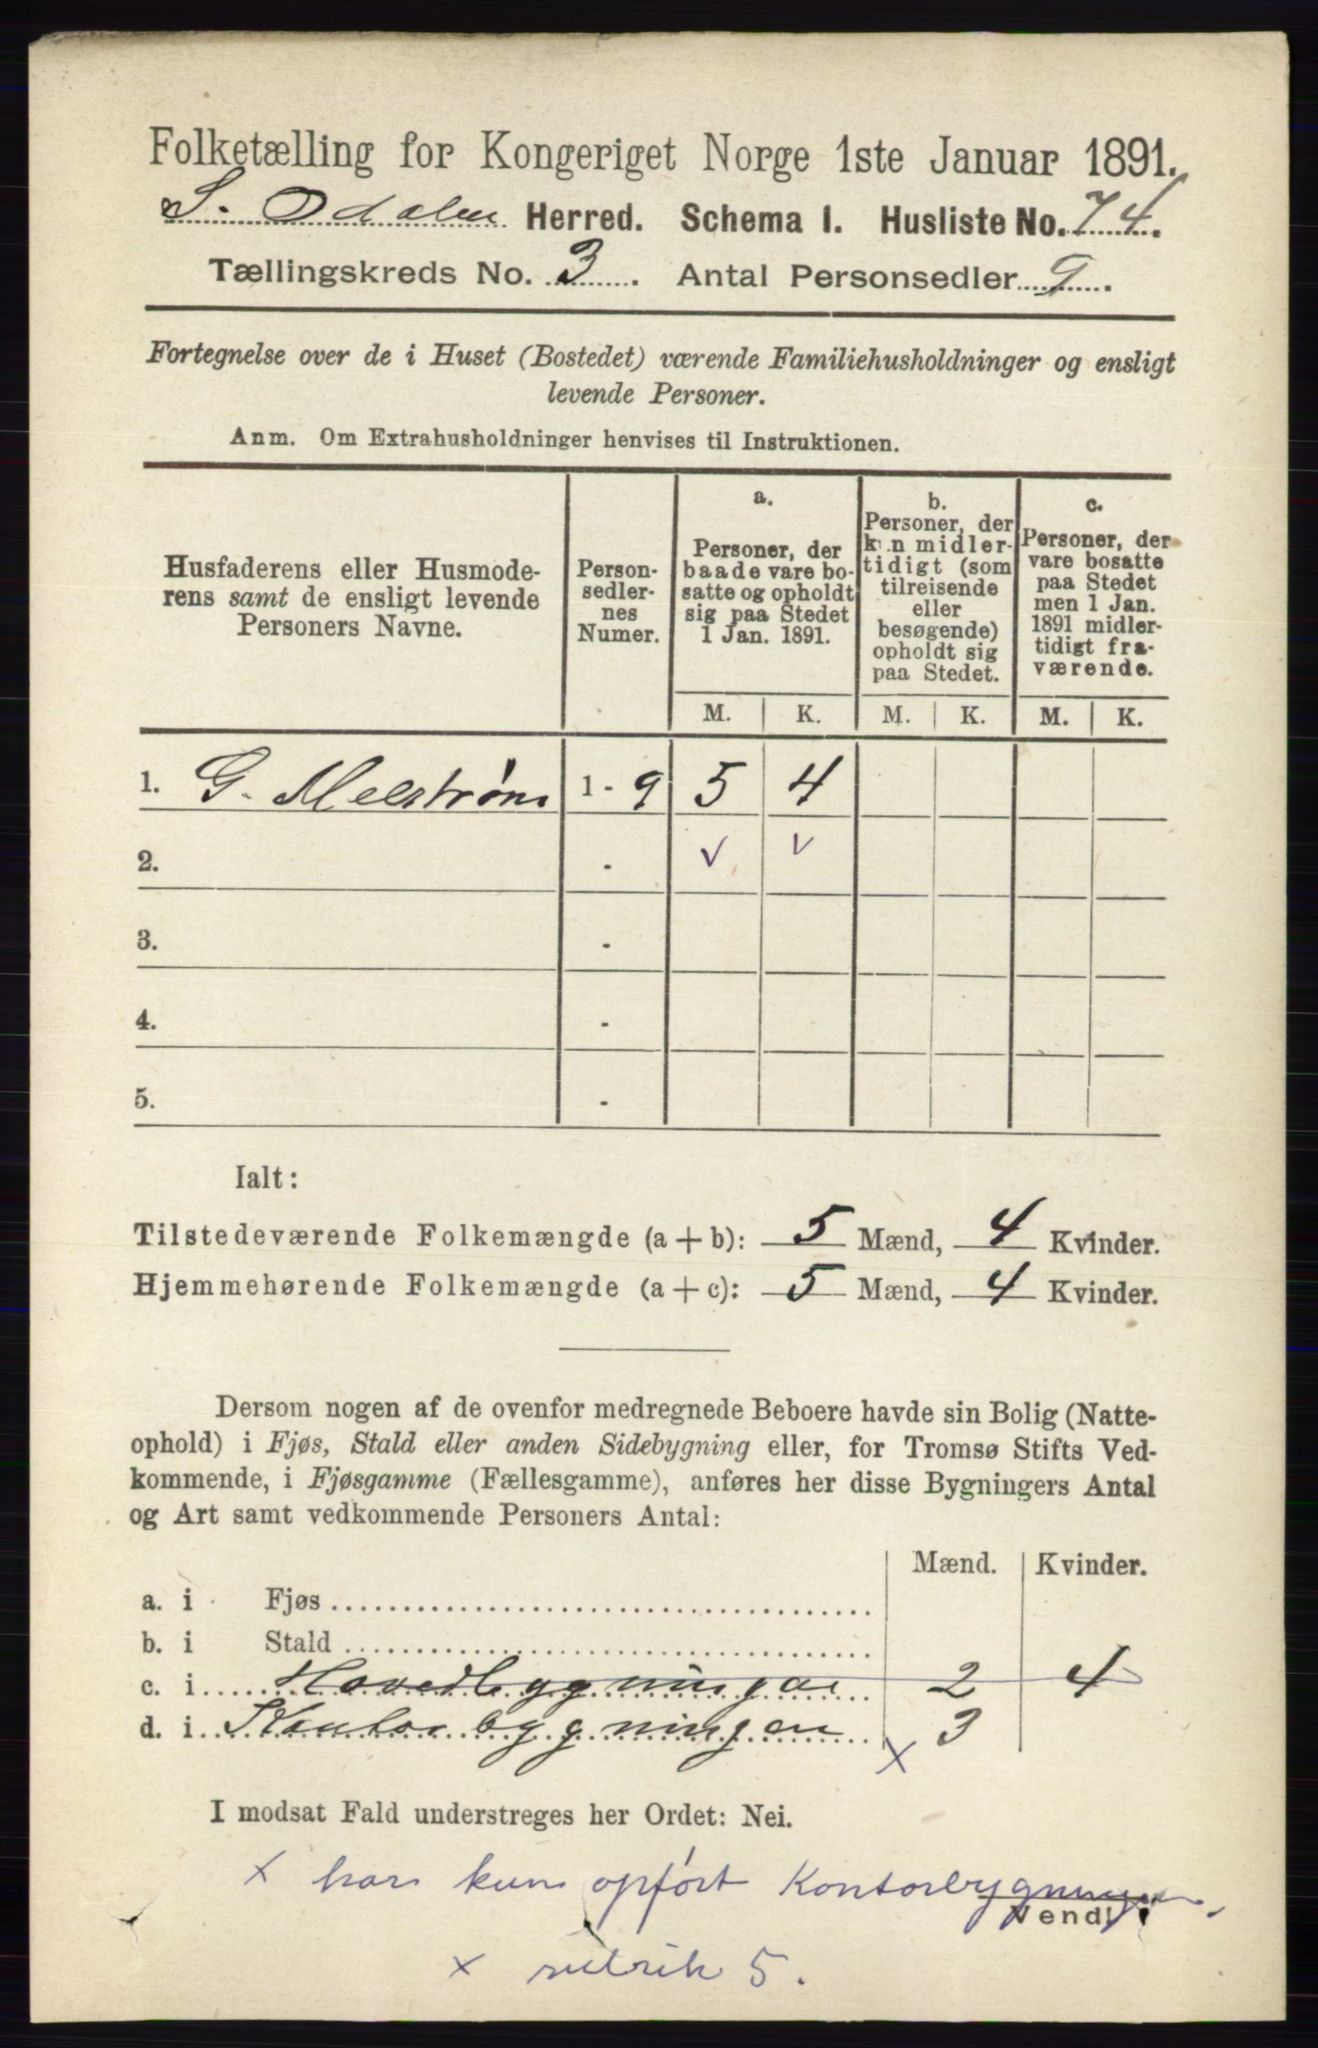 Folketælling for Kongeriget Norge 1ste Januar 1891.
S. Odalen Herred. Schema I. Husliste No. 74.
Tællingskreds No. 3. Antal Personsedler 9.
Fortegnelse over de i Huset (Bostedet) værende Familiehusholdninger og ensligt
levende Personer.
Anm. Om Extrahusholdninger henvises til Instruktionen.
Husfaderens eller Husmode-
rens samt de ensligt levende
Personers Navne.
Person-
sedler-
nes
Numer.
a.
Personer, der
baade vare bo-
satte og opholdt
sig paa Stedet
1 Jan. 1891.
b.
Personer, der
kun midler-
tidigt (som
tilreisende
eller
besøgende)
opholdt sig
paa Stedet.
c.
Personer, der
vare bosatte
paa Stedet
men 1 Jan.
1891 midler-
tidigt fra-
værende.
M. K. M. K. M. K.
1. G. Melstrøm 1 - 9 5 4
2. - v v
3. -
4. -
5. -
Ialt:
Tilstedeværende Folkemængde (a + b): 5 Mænd, 4 Kvinder.
Hjemmehørende Folkemængde (a + c): 5 Mænd, 4 Kvinder.
Dersom nogen af de ovenfor medregnede Beboere havde sin Bolig (Natte-
ophold) i Fjøs, Stald eller anden Sidebygning eller, for Tromsø Stifts Ved-
kommende, i Fjøsgamme (Fællesgamme), anføres her disse Bygningers Antal
og Art samt vedkommende Personers Antal:
Mænd. Kvinder.
a. i Fjøs
b. i Stald
c. i Hovedbygningen 2 4
d. i Kontorbygningen x 3
I modsat Fald understreges her Ordet: Nei.
x har kun opført Kontorbygningen,
Vend!
x rubrik 5.